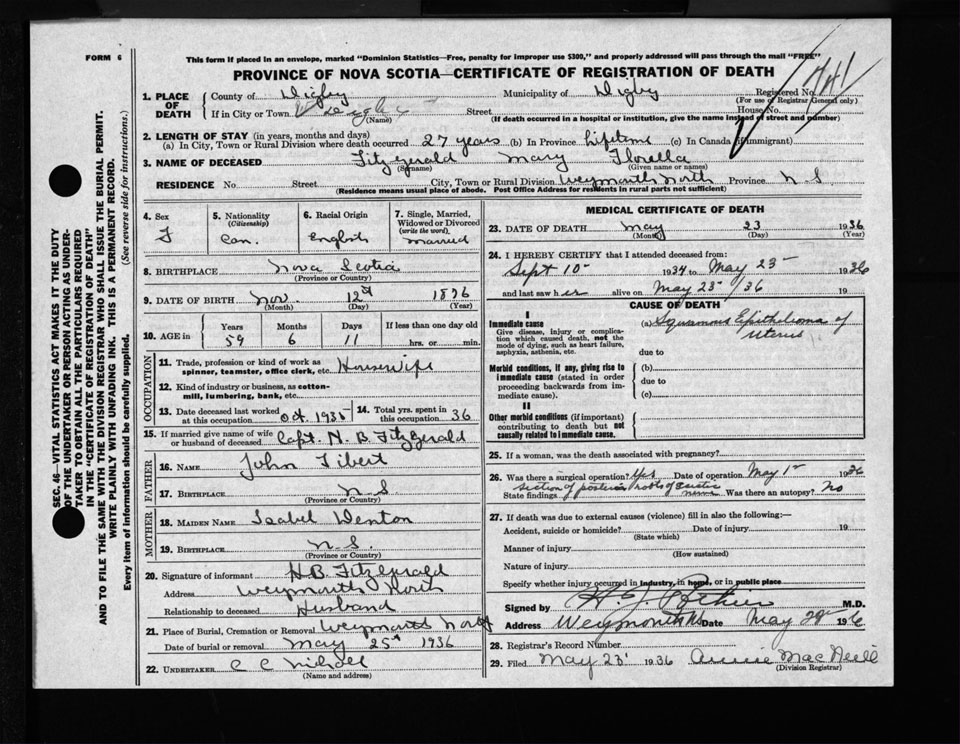 FORM 6
This form if placed in an envelope, marked "Dominion Statistics—Free, penalty for improper use $300," and properly addressed will pass through the mail "FREE"
PROVINCE OF NOVA SCOTIA—CERTIFICATE OF REGISTRATION OF DEATH
SEC. 46—VITAL STATISTICS ACT MAKES IT THE DUTY
OF THE UNDERTAKER OR PERSON ACTING AS UNDER-
TAKER TO OBTAIN ALL THE PARTICULARS REQUIRED
IN THE "CERTIFICATE OF REGISTRATION OF DEATH"
AND TO FILE THE SAME WITH THE DIVISION REGISTRAR WHO SHALL ISSUE THE BURIAL PERMIT.
WRITE PLAINLY WITH UNFADING INK. THIS IS A PERMANENT RECORD.
Every item of Information should be carefully supplied. (See reverse side for instructions.)
1. PLACE OF DEATH
County of Digby Municipality of Digby Registered No.
(For use of Registrar General only)
If in City or Town Street House No.
(Name) (If death occurred in a hospital or institution, give the name instead of street and number)
2. LENGTH OF STAY (in years, months and days)
(a) In City, Town or Rural Division where death occurred 27 years (b) In Province Lifetime (c) In Canada (if immigrant)
3. NAME OF DECEASED Fitzgerald Mary Florella
(Surname) (Given name or names)
RESIDENCE No Street City, Town or Rural Division Weymouth North Province N S
(Residence means usual place of abode. Post Office Address for residents in rural parts not sufficient)
4. Sex F
5. Nationality (Citizenship) Can.
6. Racial Origin English
7. Single, Married, Widowed or Divorced (write the word) Married
8. BIRTHPLACE Nova Scotia
(Province or Country)
9. DATE OF BIRTH Nov. 12th 1876
(Month) (Day) (Year)
10. AGE in Years Months Days If less than one day old
59 6 11 hrs. or min.
OCCUPATION
11. Trade, profession or kind of work as spinner, teamster, office clerk, etc. Housewife
12. Kind of industry or business, as cotton-mill, lumbering, bank, etc.
13. Date deceased last worked at this occupation Oct. 1935 14. Total yrs. spent in this occupation 36
15. If married give name of wife or husband of deceased Capt. H. B. FitzGerald
FATHER
16. NAME John Tibert
17. BIRTHPLACE N S
(Province or Country)
MOTHER
18. MAIDEN NAME Isabel Denton
19. BIRTHPLACE N. S.
(Province or Country)
20. Signature of informant H.B. Fitzgerald
Address Weymouth North
Relationship to deceased Husband
21. Place of Burial, Cremation or Removal Weymouth North
Date of burial or removal May 25th 1936
22. UNDERTAKER C C
(Name and address)
MEDICAL CERTIFICATE OF DEATH
23. DATE OF DEATH May 23 1936
(Month) (Day) (Year)
24. I HEREBY CERTIFY that I attended deceased from:
Sept 10 1934 to May 23 1936
and last saw her alive on May 23 /36 19
CAUSE OF DEATH
I
Immediate cause
Give disease, injury or complication which caused death, not the mode of dying, such as heart failure, asphyxia, asthenia, etc.
(a) Squamous Epithelioma of
Uterus
due to
Morbid conditions, if any, giving rise to immediate cause (stated in order proceeding backwards from immediate cause).
(b)
due to
(c)
II
Other morbid conditions (if important) contributing to death but not causally related to immediate cause.
25. If a woman, was the death associated with pregnancy?
26. Was there a surgical operation? Yes Date of operation May 1 1936
State findings section of posterior roots of nerve Was there an autopsy? No
27. If death was due to external causes (violence) fill in also the following:—
Accident, suicide or homicide? Date of injury 19
(State which)
Manner of injury
(How sustained)
Nature of injury
Specify whether injury occurred in industry, in home, or in public place
Signed by M.D.
Address Weymouth NS Date May 1936
28. Registrar's Record Number
29. Filed May 23 1936 Annie MacNeill
(Division Registrar)